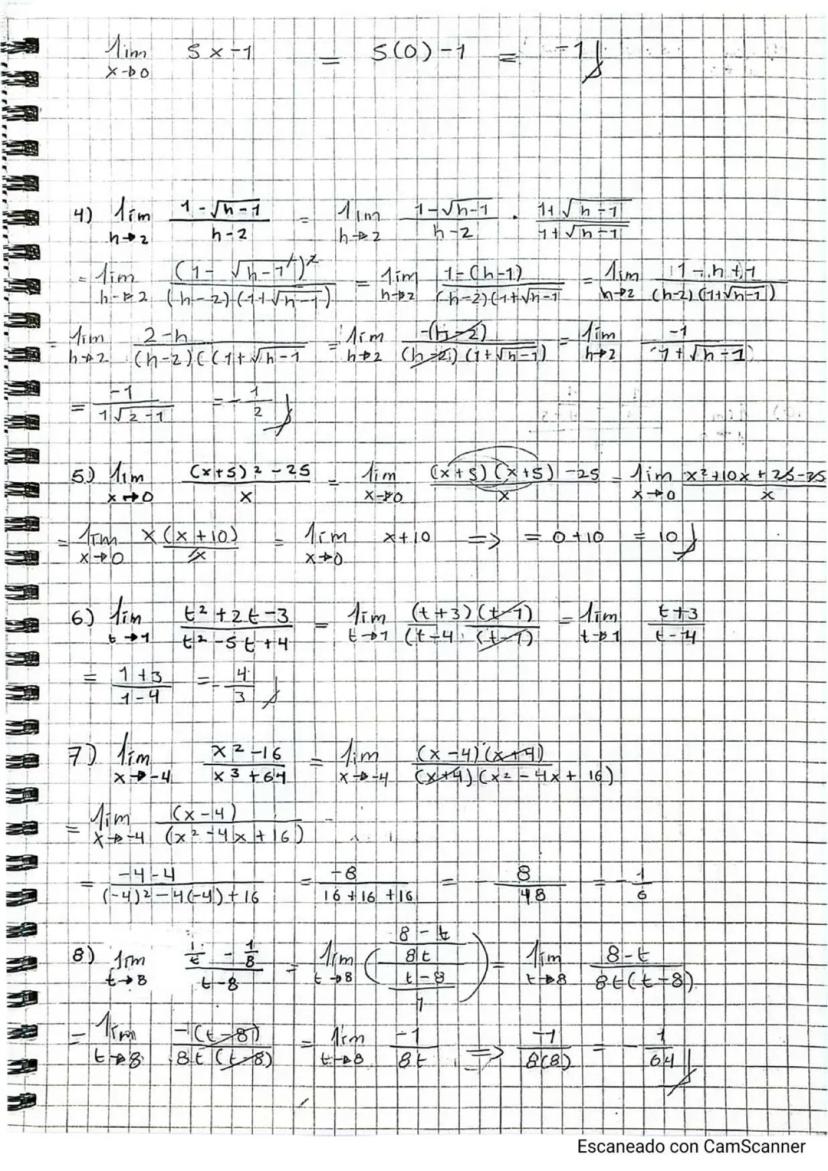 lim x→0 5x-1 = 5(0)-1 = -1
4) lim h→2 (1-√(h-1))/(h-2) = lim h→2 (1-√(h-1))/(h-2) · (1+√(h-1))/(1+√(h-1))
= lim h→2 (1-√(h-1))²/((h-2)(1+√(h-1))) = lim h→2 (1-(h-1))/((h-2)(1+√(h-1)) = lim h→2 (1-h+1)/((h-2)(1+√(h-1))
= lim h→2 (2-h)/((h-2)((1+√(h-1)) = lim h→2 (-(h-2))/((h-2)(1+√(h-1))) = lim h→2 (-1)/(1+√(h-1))
= (-1)/(1√(2-1)) = -1/2
5) lim x→0 ((x+5)²-25)/x = lim x→0 ((x+5)(x+5)-25)/x = lim x→0 (x²+10x+25-25)/x
= lim x→0 (x(x+10))/x = lim x→0 x+10 => = 0+10 = 10
6) lim t→1 (t²+2t-3)/(t²-5t+4) = lim t→1 ((t+3)(t-1))/((t-4 (t-1)) = lim t→1 (t+3)/(t-4)
= (1+3)/(1-4) = -4/3
7) lim x→-4 (x²-16)/(x³+64) = lim x→-4 ((x-4)(x+4))/((x+4)(x²-4x+16))
= lim x→-4 (x-4)/(x²-4x+16)
= (-4-4)/((-4)²-4(-4)+16) = -8/(16+16+16) = -8/48 = -1/6
8) lim t→8 (1/t - 1/8)/(t-8) = lim t→8 (((8-t)/(8t))/((t-8)/1)) = lim t→8 (8-t)/(8t(t-8))
= lim t→8 (-(t-8))/(8t(t-8)) = lim t→8 (-1)/(8t) => (-1)/(8(8)) = -1/64
Escaneado con CamScanner